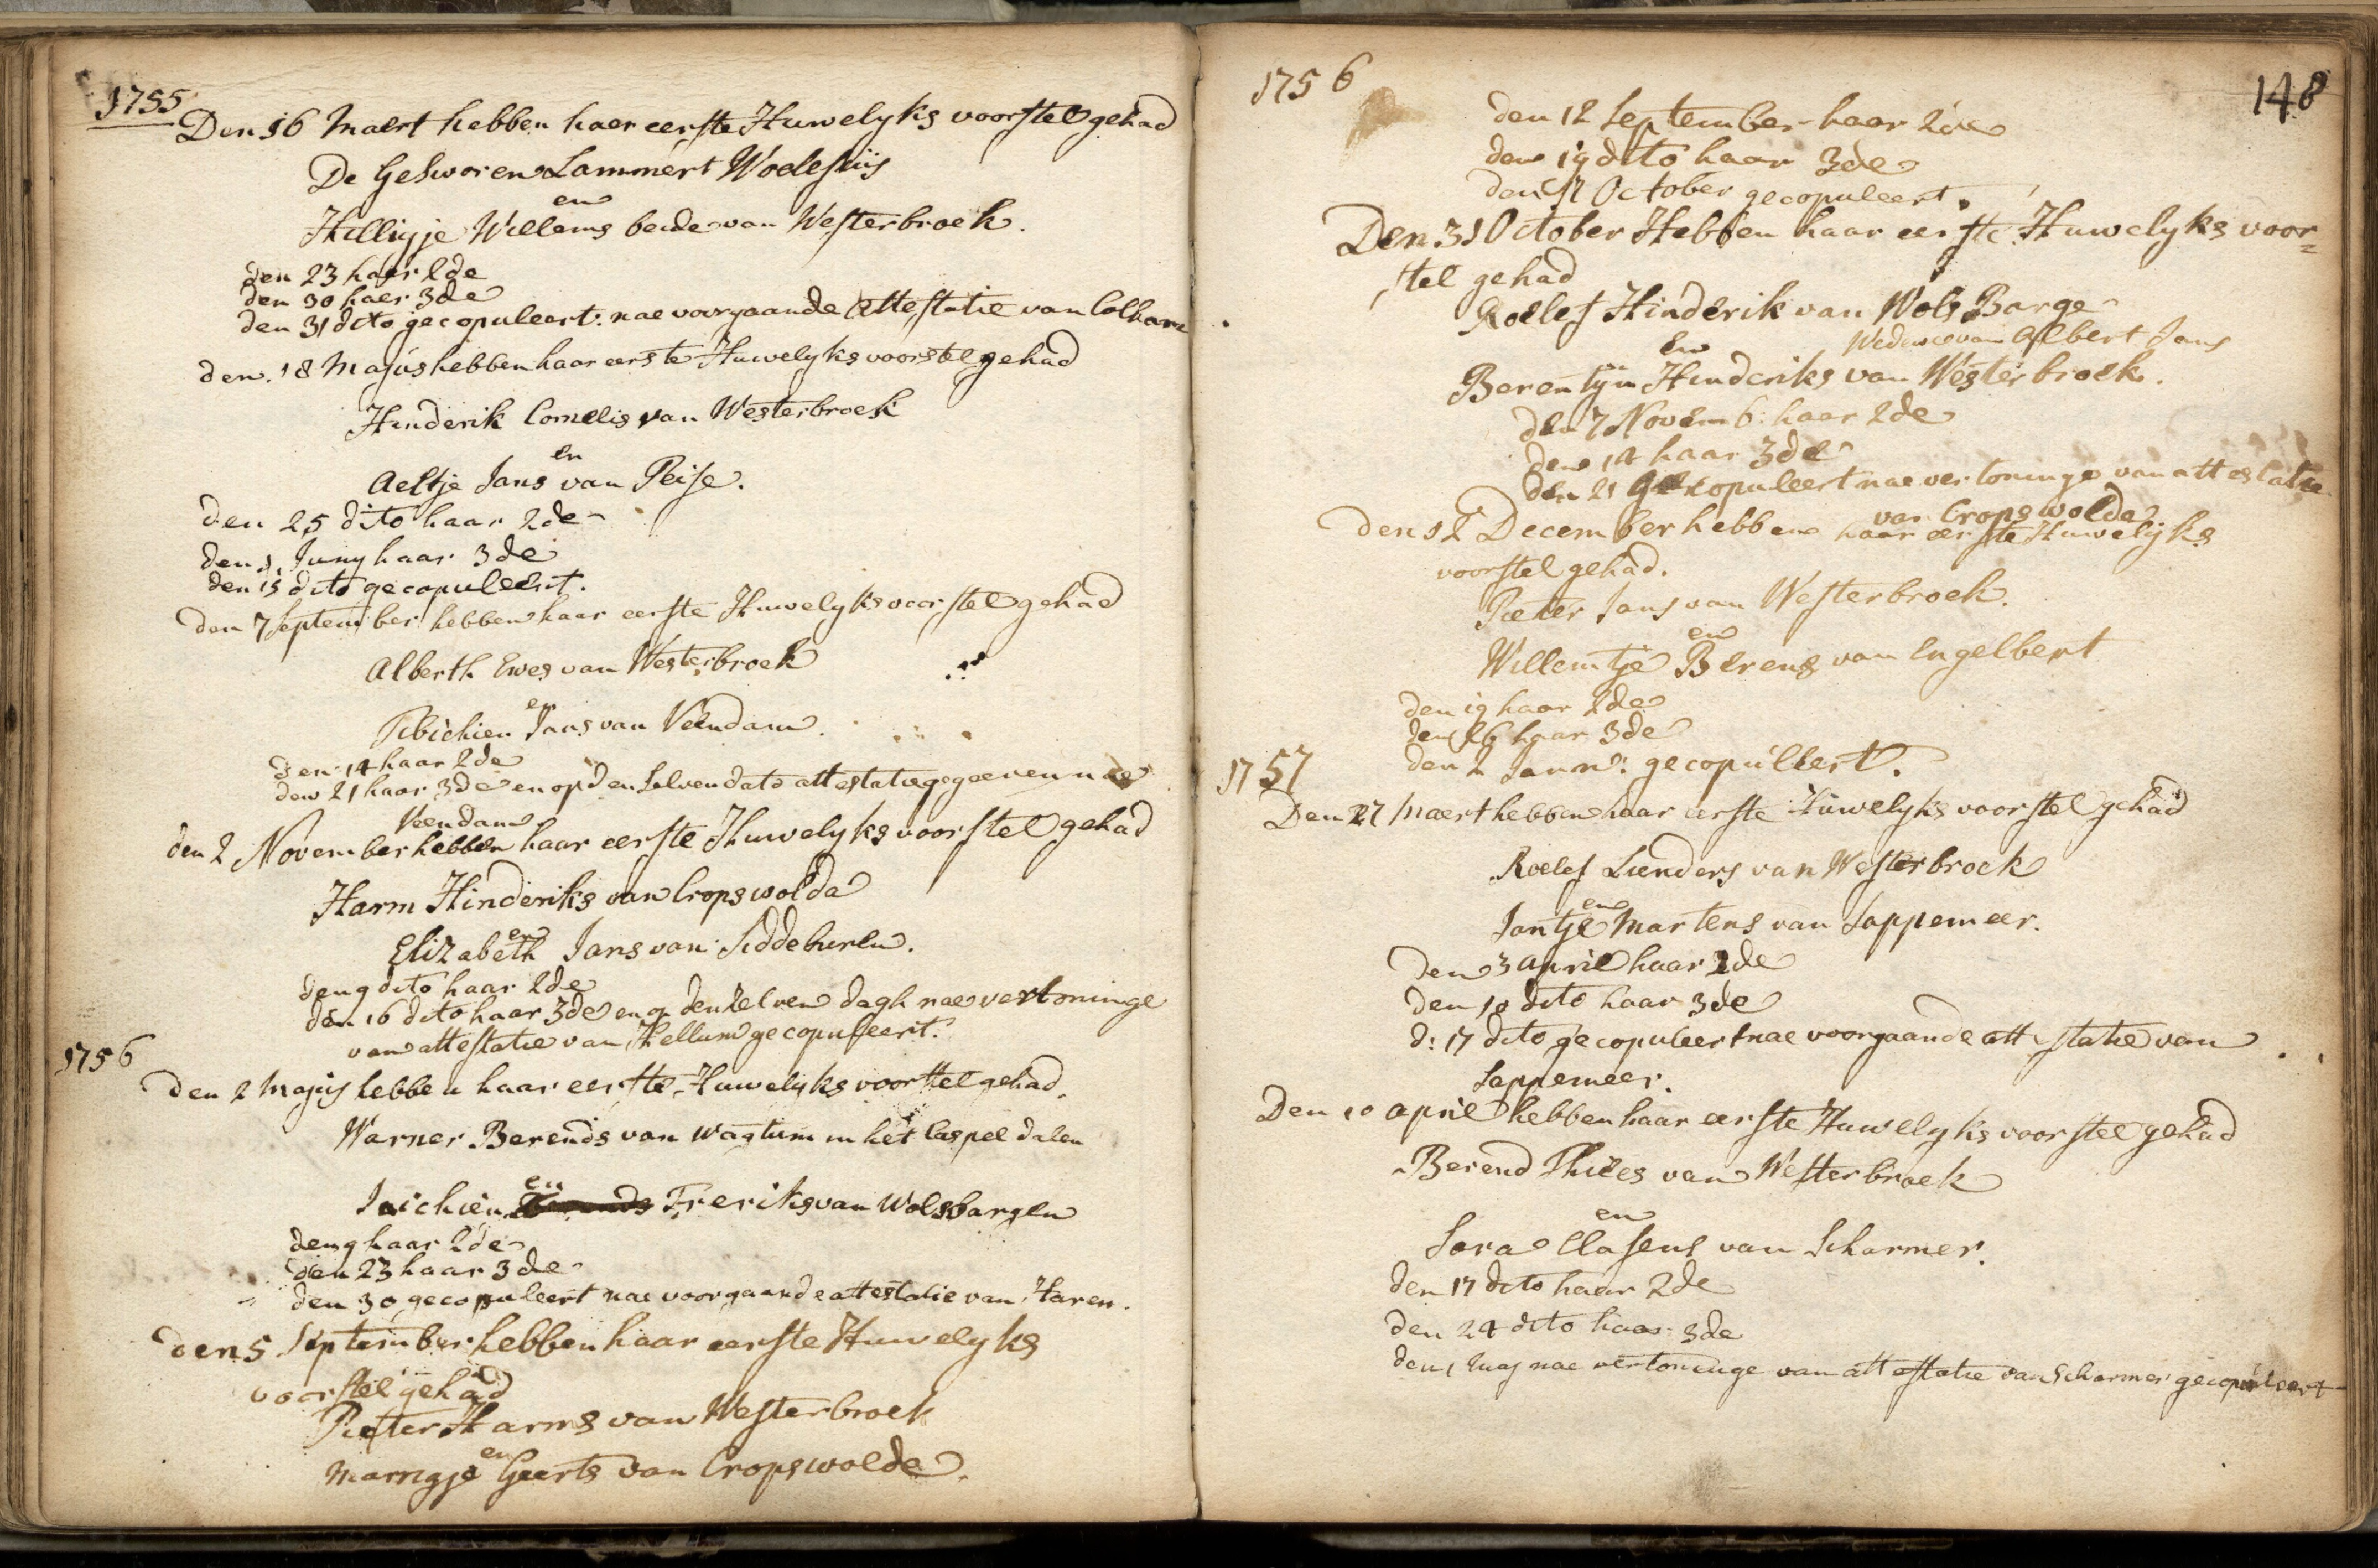 1755
Den 16 Maert hebben haer eerste Huwelyks voorstel gehad
De Gesworen Lammert Woelesius
en
Hilligje Willems beide van Westerbroek.
den 23 haer 2de
den 30 haer 3de
den 31 dito gecopuleert. nae voorgaande Attestatie van Colham
den. 18 Majus hebben haar eerste Huwelyks voorstel gehad
Hinderik Cornelis van Westerbroek
en
Aeltje Jans van Peise.
den 25 dito haar 2de
den 1, Juny haar 3de
den 15 dito gecopuleert.
den 7 September hebben haar eerste Huwelyks voorstel gehad
Alberth Ewes van Westerbroek
en
Jans van Veendam.
den 14 haar 2de
den 21 haar 3de en op den selven dato attestatie gegeeven nae
Veendam
den 2 November hebben haar eerste Huwelyks voorstel gehad
Harm Hinderiks van Cropswolda
en
Elizabeth Jans van Siddeburen.
den 9 dito haar 2de
den 16 dito haar 3de en op denselven dagh nae vertoninge
van attestatie van Hellum gecopuleert.
1756
Den 2 Majus hebben haar eerste Huwelyks voorstel gehad.
Warner Berends van Wagtum in het Caspel dalen
en
Freriks van Wolsbargen
den 9 haar 2de
den 23 haar 3de
den 30 gecopuleert nae voorgaande attestatie van Haren.
den 5 September hebben haar eerste Huwelyks
voorstel gehad
Pieter Harms van Westerbroek
en
Marrigje Geerts van Cropswolde.
1756
148
den 12 September haar 2de
den 19 dito haar 3de
den 17 October gecopuleert.
Den 31 October Hebben haar eerste Huwelyks voor=
stel gehad
Roelef Hinderik van Wols Barge
En
Weduwe van Albert Jans
Berentijn Hinderiks van Westerbroek.
den 7 Novemb: haar 2de
den 14 haar 3de
den 21 Gecopuleert nae vertoninge van attestatie
van Cropswolda
den 12 December hebben haar eerste Huwelyks
voorstel gehad.
Pieter Jans van Westerbroek.
en
Willemtje Berens van Engelbert
den 19 haar 2de
den 26 haar 3de
den 2 Janu: gecopuleert.
1757
Den 27 Maert hebben haar eerste Huwelyks voorstel gehad
Roelef Lunders van Westerbroek
en
Jantje Martens van Sappemeer.
den 3 April haar 2de
den 10 dito haar 3de
d: 17 dito gecopuleert nae voorgaande attestatie van
Sappemeer.
Den 10 April hebben haar eerste Huwelyks voorstel gehad
Berend Thies van Westerbroek
en
Sara Clasens van Scharmer.
den 17 dito haar 2de
den 24 dito haar 3de
den 1 May nae vertoninge van attestatie van Scharmer gecopuleert